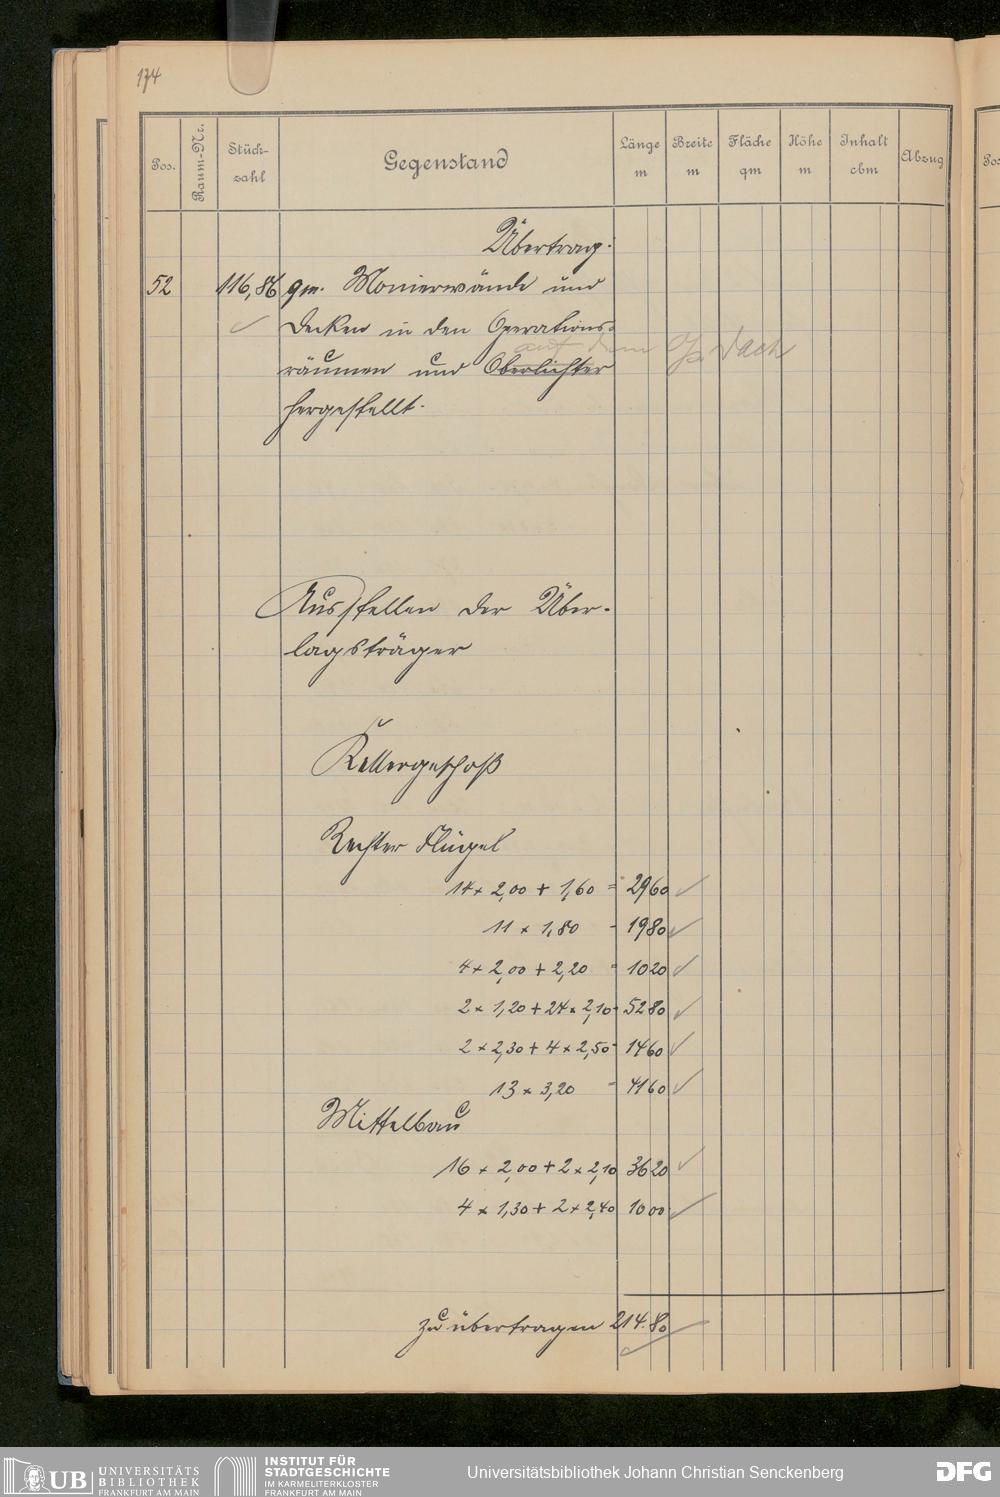 174
Pos. Raum-Nr. Stück-zahl Gegenstand Länge m Breite m Fläche qm Höhe m Inhalt cbm Abzug
Übertrag:
52 116,86 qm. Monierwände und
Decken in den Operations-
auf dem Dach
räumen und Oberlichter
hergestellt.
Ausstellen der Über-
lagsträger
Kellergeschoß
Rechter Flügel
14 x 2,00 + 1,60 = 29 60
11 x 1,80 = 19 80
4 x 2,00 + 2,20 = 10 20
2 x 1,20 + 24 x 2,10 = 52 80
2 x 2,30 + 4 x 2,50 = 14 60
13 x 3,20 = 41 60
Mittelbau
16 x 2,00 + 2 x 2,10 36 20
4 x 1,30 + 2 x 2,40 10 00
zu übertragen 214.80
UB UNIVERSITÄTS
BIBLIOTHEK
FRANKFURT AM MAIN
INSTITUT FÜR
STADTGESCHICHTE
IM KARMELITERKLOSTER
FRANKFURT AM MAIN
Universitätsbibliothek Johann Christian Senckenberg
DFG